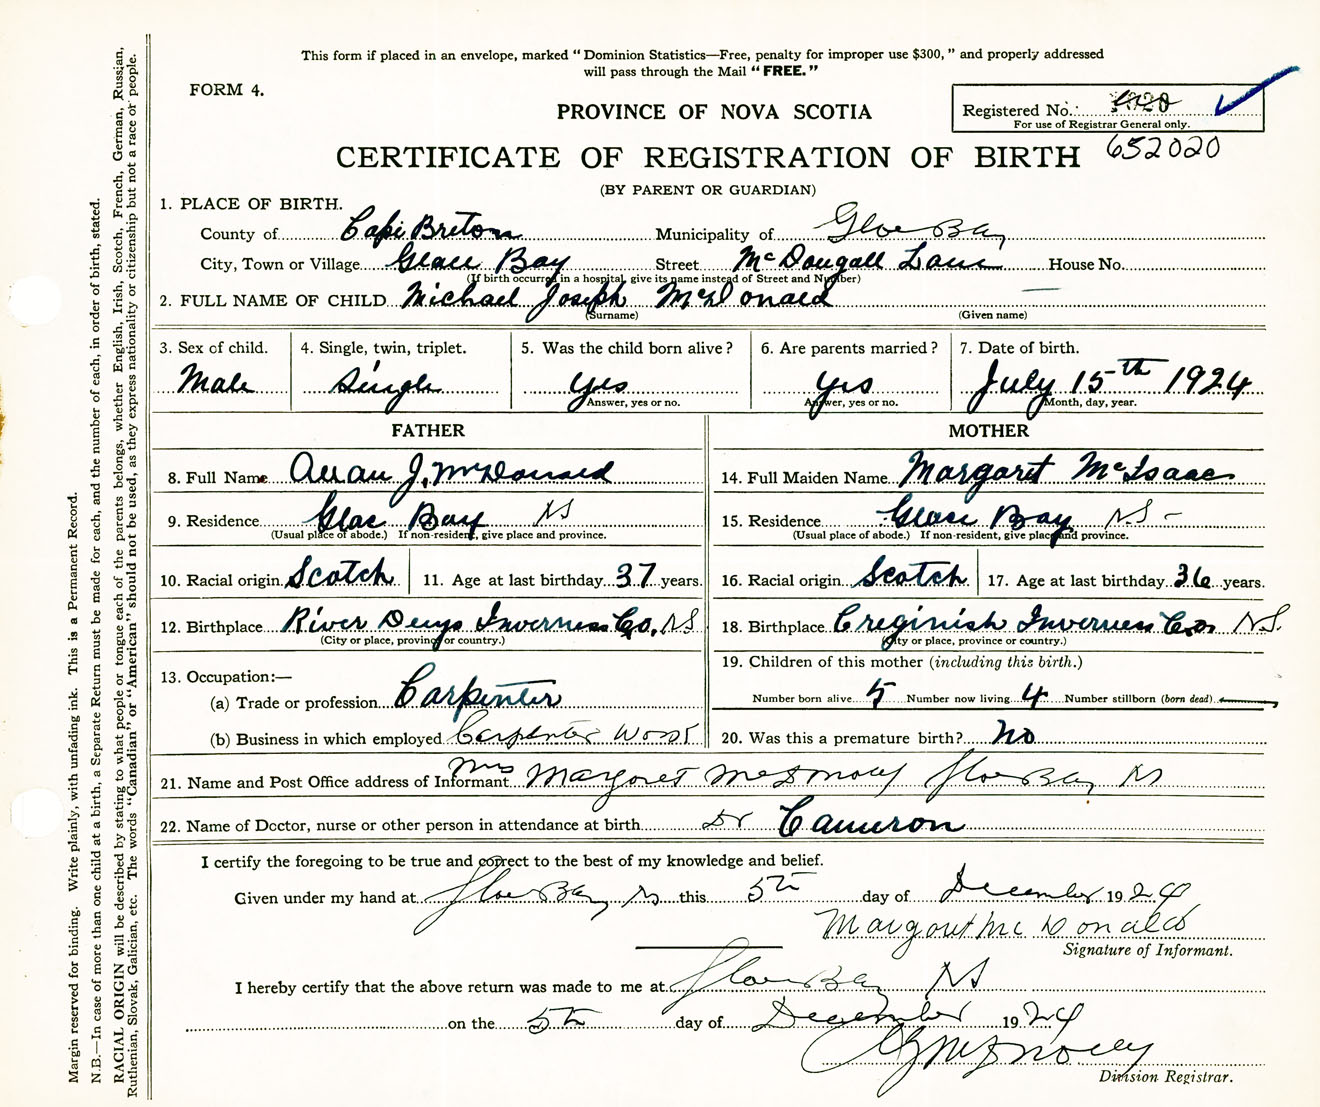 This form if placed in an envelope, marked “Dominion Statistics—Free, penalty for improper use $300,” and properly addressed
will pass through the Mail “FREE.”
FORM 4.
PROVINCE OF NOVA SCOTIA
Registered No.
For use of Registrar General only.
652020
CERTIFICATE OF REGISTRATION OF BIRTH
(BY PARENT OR GUARDIAN)
1. PLACE OF BIRTH.
County of Cape Breton Municipality of Glace Bay
City, Town or Village Glace Bay Street McDougall Lane House No.
(If birth occurred in a hospital, give its name instead of Street and Number)
2. FULL NAME OF CHILD Michael Joseph McDonald
(Surname) (Given name)
3. Sex of child. 4. Single, twin, triplet. 5. Was the child born alive? 6. Are parents married? 7. Date of birth.
Male Single Yes Yes July 15th 1924
Answer, yes or no. Answer, yes or no. Month, day, year.
FATHER MOTHER
8. Full Name Allan J. McDonald 14. Full Maiden Name Margaret McIsaac
9. Residence Glac Bay NS 15. Residence Glace Bay N.S -
(Usual place of abode.) If non-resident, give place and province. (Usual place of abode.) If non-resident, give place and province.
10. Racial origin Scotch 11. Age at last birthday 37 years. 16. Racial origin Scotch 17. Age at last birthday 36 years.
12. Birthplace River Denys Inverness Co. N.S. 18. Birthplace Creginish Inverness Co N.S.
(City or place, province or country.) (City or place, province or country.)
13. Occupation:— 19. Children of this mother (including this birth.)
(a) Trade or profession Carpenter Number born alive 5 Number now living 4 Number stillborn (born dead)
(b) Business in which employed Carpenter Work 20. Was this a premature birth? No
21. Name and Post Office address of Informant Mrs Margaret McDonald Glace Bay NS
22. Name of Doctor, nurse or other person in attendance at birth Dr Cameron
I certify the foregoing to be true and correct to the best of my knowledge and belief.
Given under my hand at Glace Bay NS this 5th day of December 1924
Margaret McDonald
Signature of Informant.
I hereby certify that the above return was made to me at Glace Bay NS
on the 5th day of December 1924
Division Registrar.
Margin reserved for binding. Write plainly, with unfading ink. This is a Permanent Record.
N.B.—In case of more than one child at a birth, a Separate Return must be made for each, and the number of each, in order of birth, stated.
RACIAL ORIGIN will be described by stating to what people or tongue each of the parents belongs, whether English, Irish, Scotch, French, German, Russian,
Ruthenian, Slovak, Galician, etc. The words “Canadian” or “American” should not be used, as they express nationality or citizenship but not a race or people.